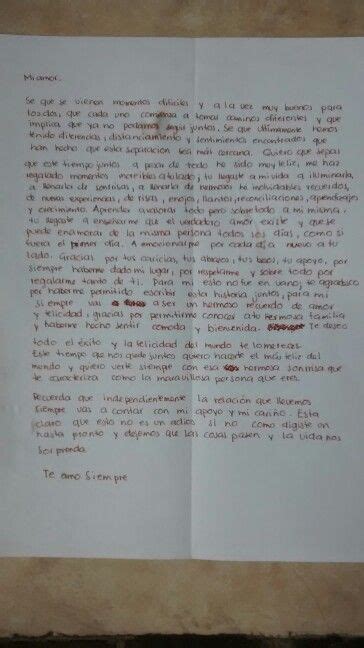 Mi amor.
Se que se vienen momentos dificiles y a la vez muy buenos para
los dos, que cada uno comiensa a tomar caminos diferentes y que
implica que ya no podamos seguir juntos. Se que ultimamente hemos
tenido diferencias, distanciamiento y sentimientos encontrados que
han hecho que esta separacion sea más cercana. Quiero que sepas
que este tiempo juntos a pesar de todo he sido muy feliz, me has
regalado momentos increibles a tu lado; tu llegaste a mi vida a iluminarla,
a llenarla de sonrisas, a llenarla de hermosos e inolvidables recuerdos,
de nuevas experiencias, de risas, enojos, llantos, reconciliaciones, aprendizajes
y crecimiento. Aprender a valorar todo pero sobre todo a mi misma.
tu llegaste a enseñarme que el verdadero amor existe y que se
puede enamorar de la misma persona todos los dias, como si
fuera el primer dia. A emocionarme por cada dia nuevo a tu
lado. Gracias por tus caricias, tus abrazos, tus besos, tu apoyo, por
siempre haberme dado mi lugar, por respetarme y sobre todo por
regalarme tanto de ti. Para mi esto no fue en vano; te agradesco
por haberme permitido escribir esta historia juntos, para mi
siempre vas a ser un hermoso recuerdo de amor
y felicidad, gracias por permitirme conocer a tu hermosa familia
y haberme hecho sentir comoda y bienvenida. Te deseo
todo el éxito y la felicidad del mundo te lo mereces.
Este tiempo que nos quede juntos quiero hacerte el más feliz del
mundo y quiero verte siempre con esa hermosa sonrisa que
te caracteriza como la maravillosa persona que eres.
Recuerda que independientemente la relación que llevemos
siempre vas a contar con mi apoyo y mi cariño. Esta
claro que esto no es un adios si no como dijiste un
hasta pronto y dejemos que las cosas pasen y la vida nos
sorprenda.
Te amo Siempre